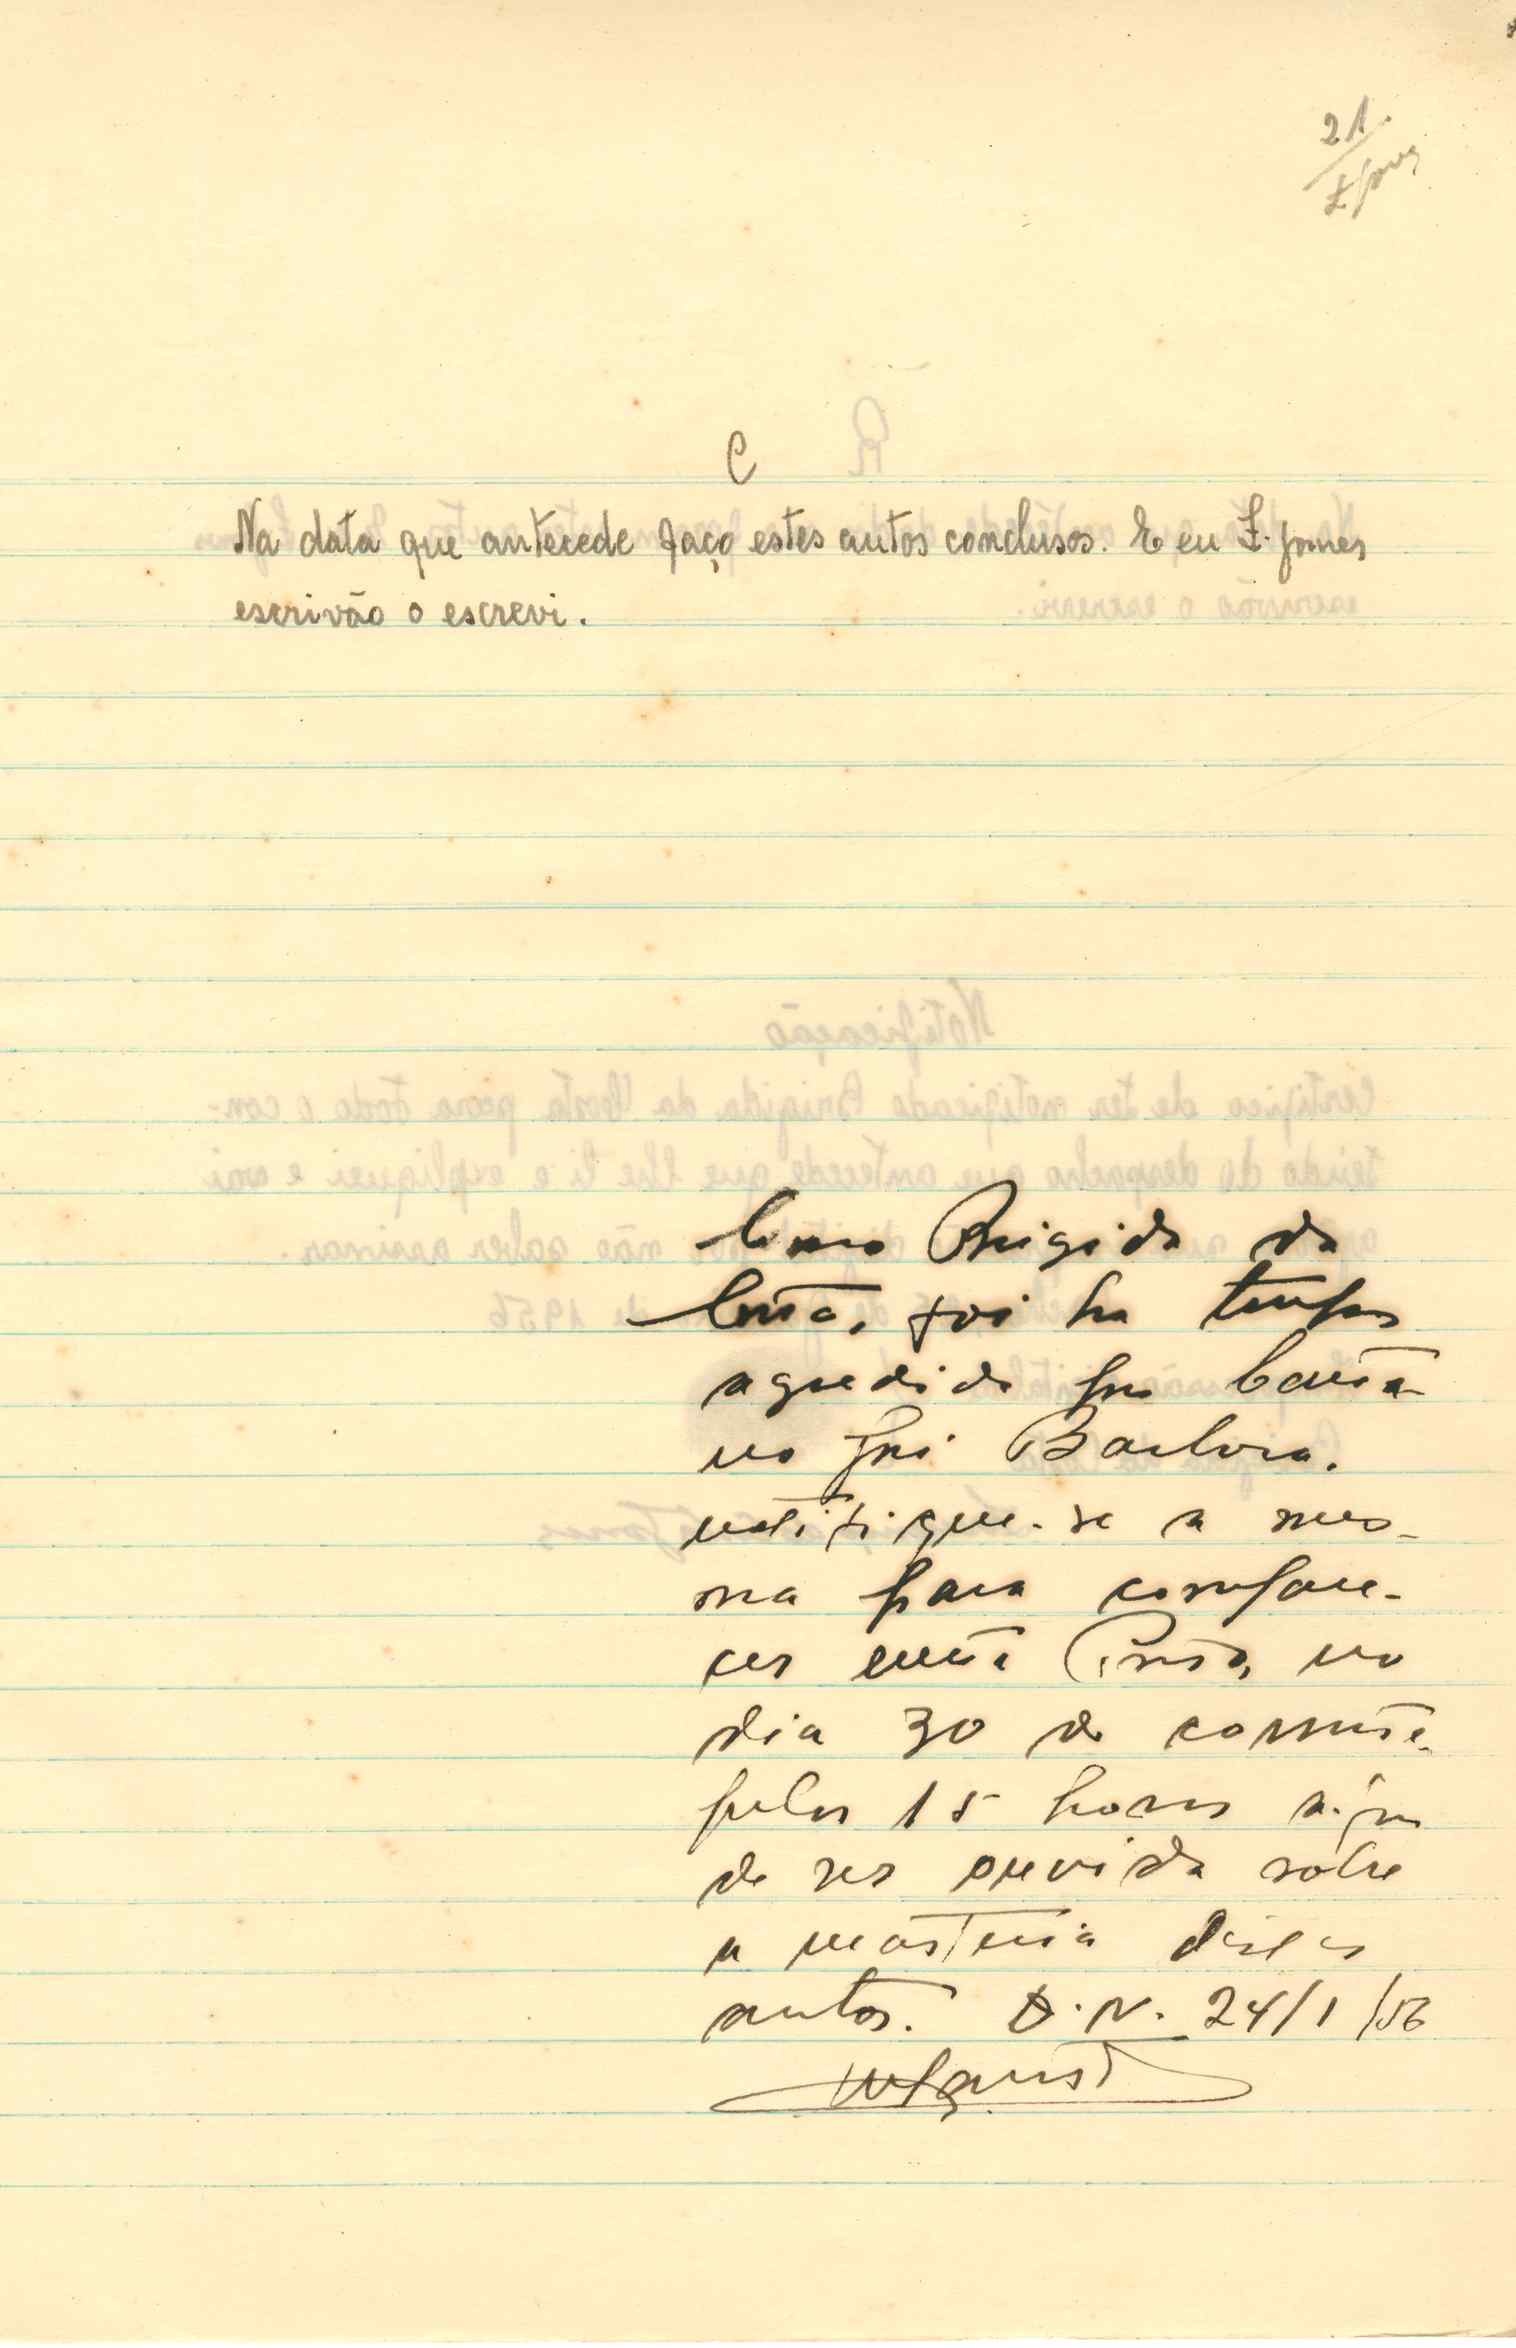 21
C
Na data que antecede faço estes autos conclusos. E eu Z. Gomes
escrivão o escrevi.
Como Brigida da
Costa, foi ha tempos
agredida por Caeta-
no José Barbosa.
notifique-se a mes-
ma para compare-
cer nesta no
dia 30 do corrente
pelas 15 horas afim
de ser ouvida sobre
a materia destes
autos. D.N. 24/1/56